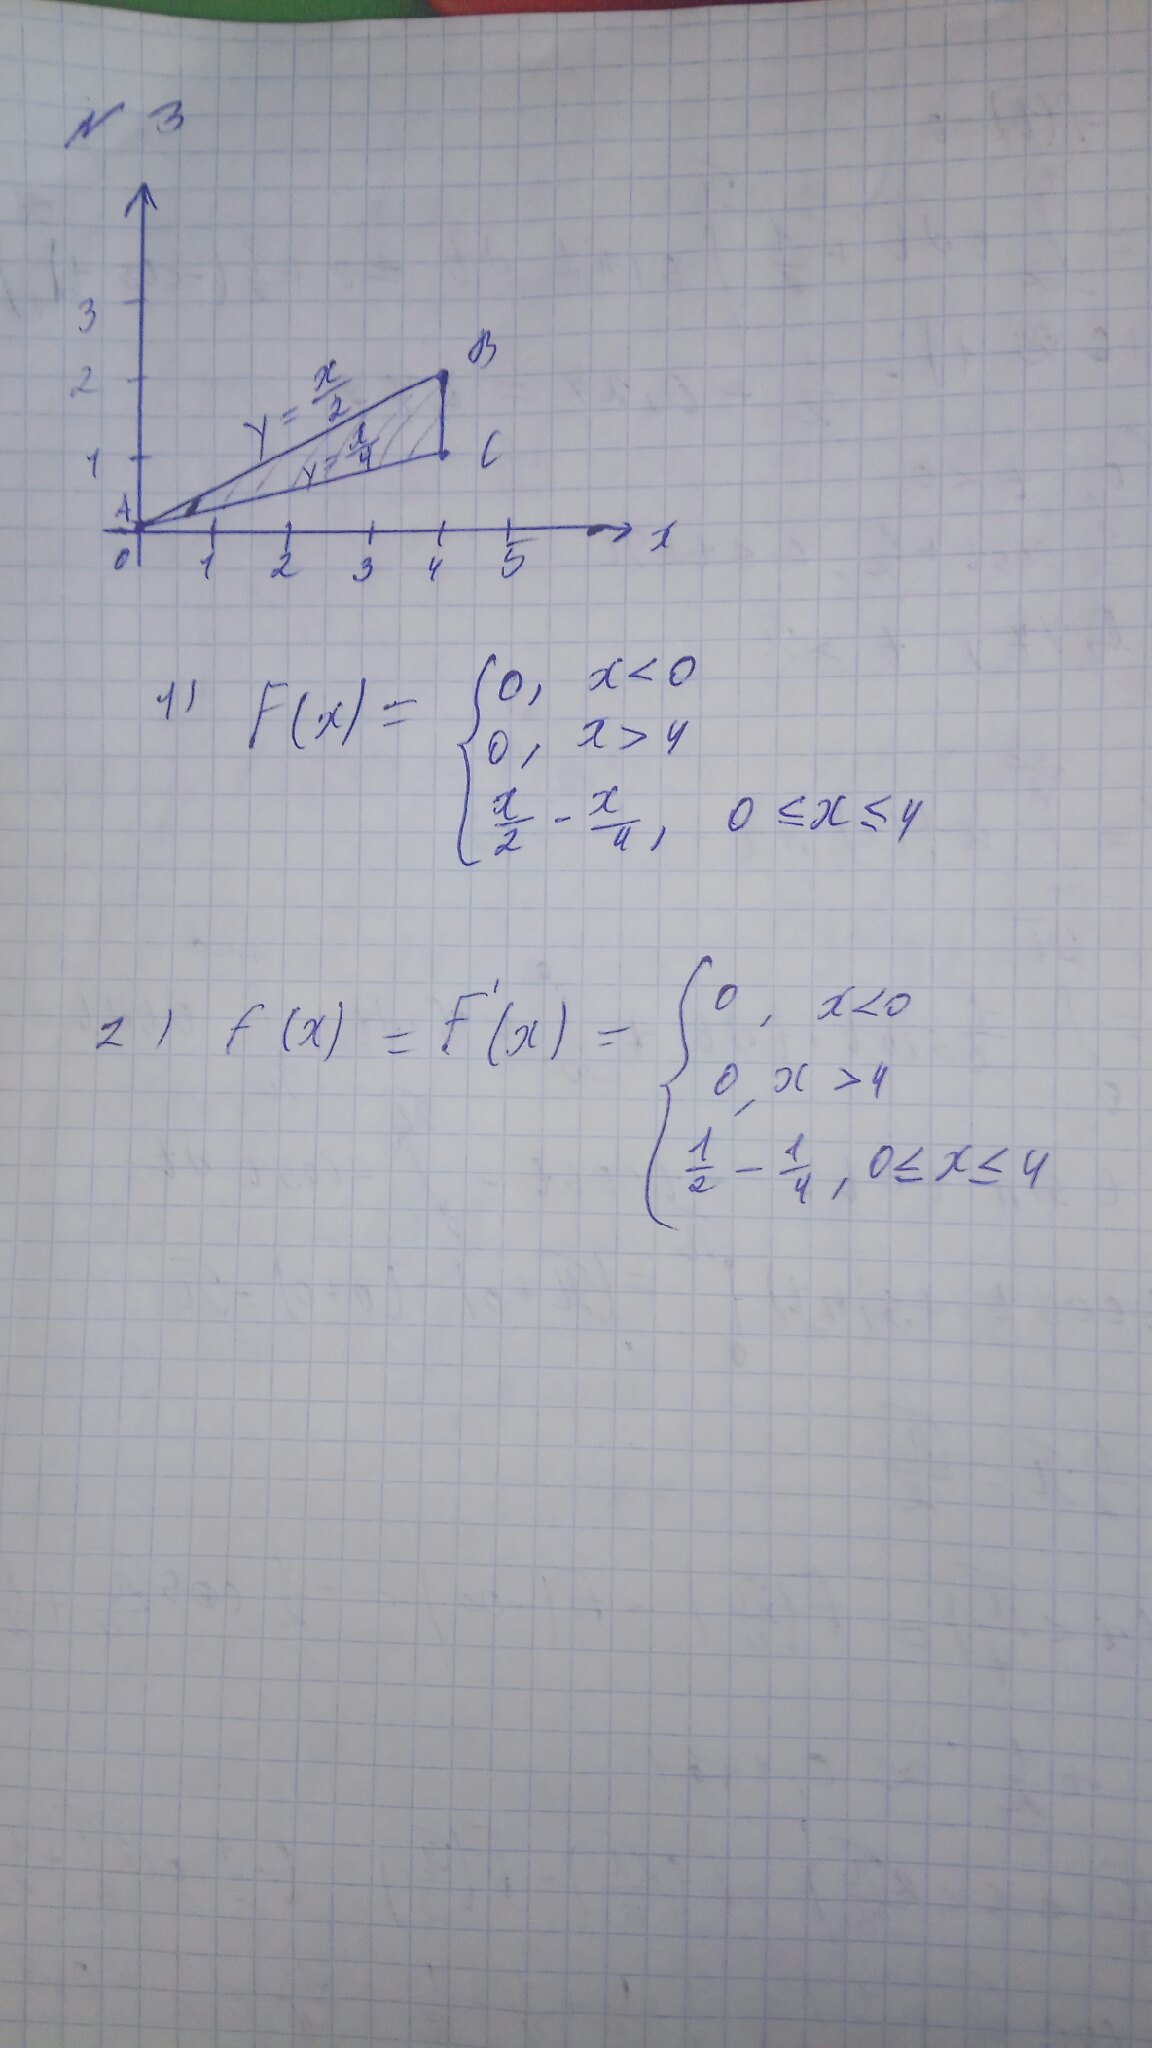 N 3
3
2
1
A
0 1 2 3 4 5 x
B
C
y = x/2
y = x/4
1) F(x) = { 0, x < 0
0, x > 4
x/2 - x/4, 0 ≤ x ≤ 4
2) f(x) = F'(x) = { 0, x < 0
0, x > 4
1/2 - 1/4, 0 ≤ x ≤ 4